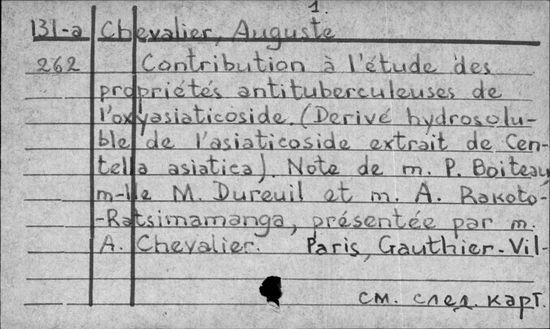 1.
131-a Chevalier, Auguste
262 Contribution à l'étude des
propriétés antituberculeuses de
l'oxyasiaticoside. (Derivé hydrosolu-
ble de l'asiaticoside extrait de Cen-
tella asiatica). Note de m. P. Boiteau,
m-lle M. Dureuil et m. A. Rakoto-
-Ratsimamanga, présentée par m.
A. Chevalier. Paris, Gauthier-Vil-
см. след. карт.